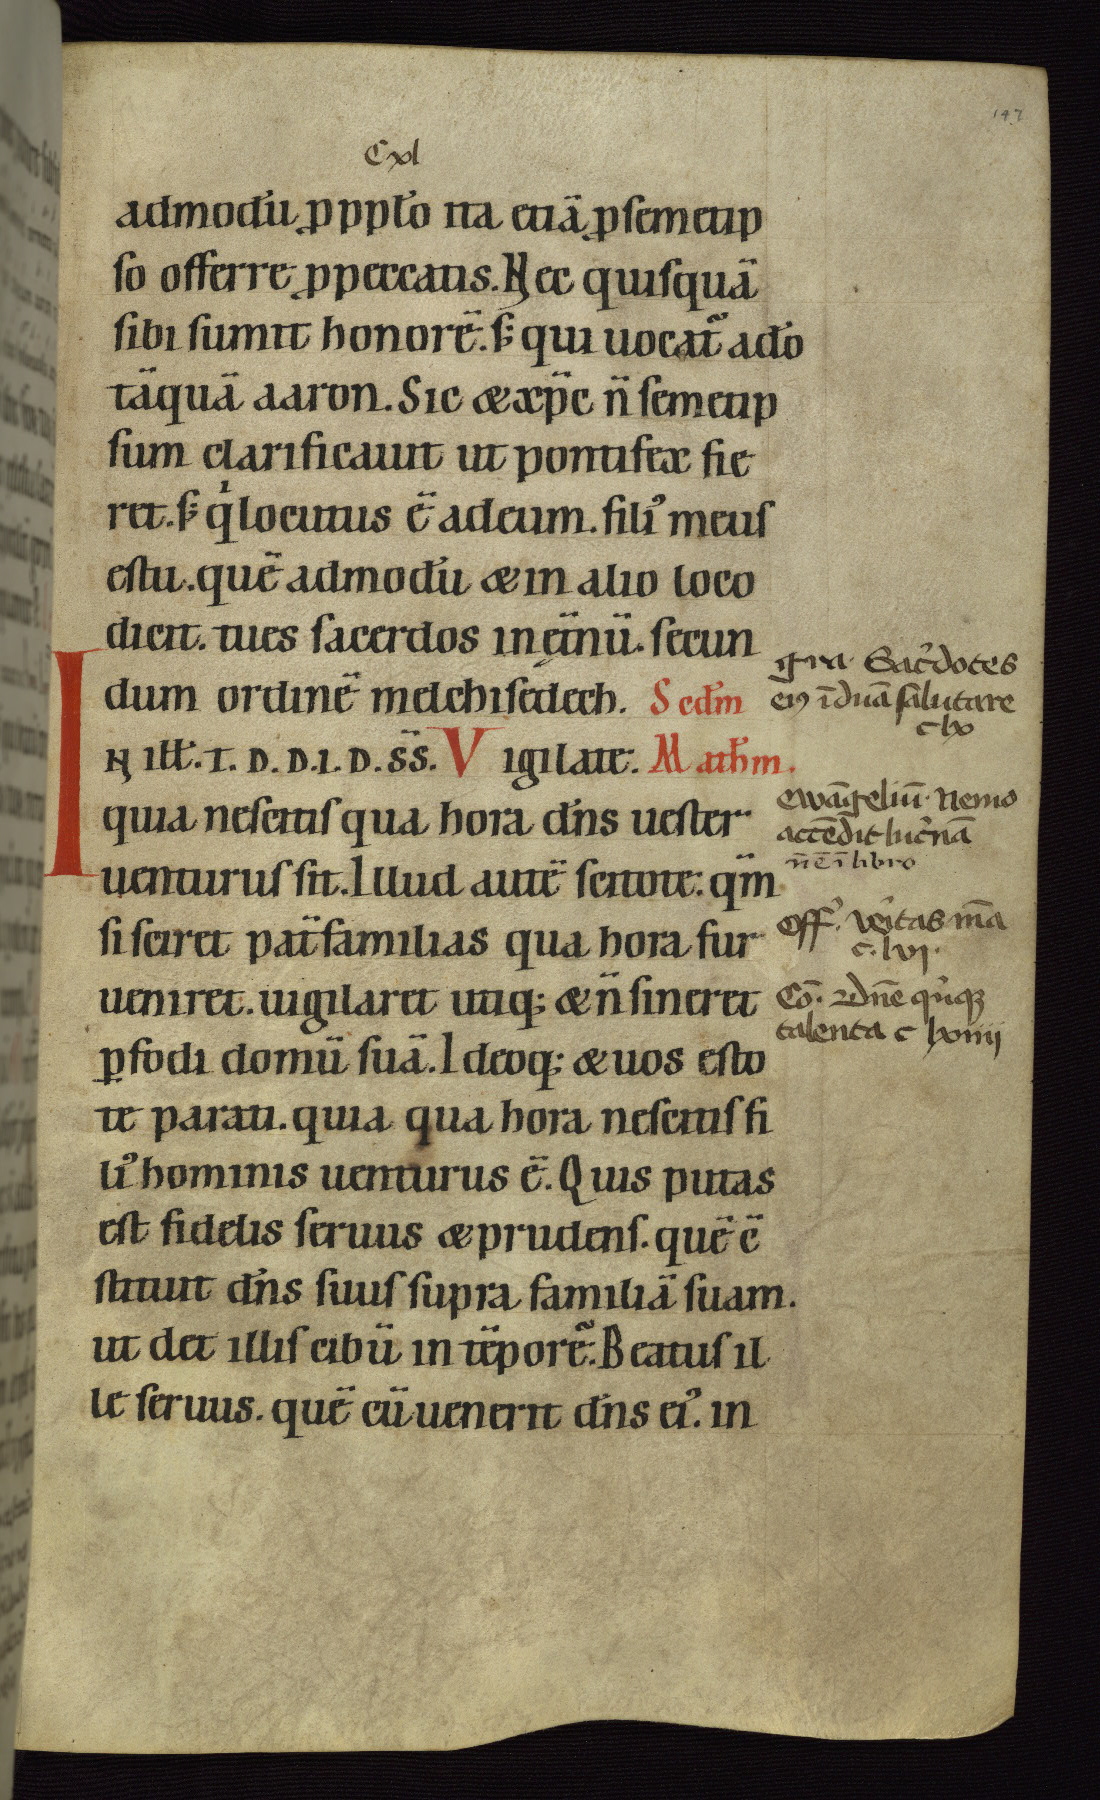 147
Cxl
admodū ꝓ pp̄lo ita etiā ꝓ semetip
so offerre ꝓ peccatis. Nec quisquā
sibi sumit honorē. s; qui uocat᷑ a do
tāquā aaron. Sic & xp̄c n̄ semetip
sum clarificauit ut pontifex fie
ret. s; qⁱ locutus ē ad eum. fili᾽ meus
es tu. quē admodū & in alio loco
dicit. tu es sacerdos in et̄nū. secun
dum ordinē melchisedech. Scdm
IN ill. T. D. D. I. D. SS. Vigilate. Math̄m.
quia nescitis qua hora dn̄s uester
uenturus sit. Illud autē scitote: qm̄
si sciret pat̄familias qua hora fur
ueniret. uigilaret utiq; & n̄ sineret
ꝑfodi domū suā. Ideoq; & uos esto
te parati. quia qua hora nescitis fi
li᾽ hominis uenturus ē. Quis putas
est fidelis seruus & prudens. quē c̄
stituit dn̄s suus supra familiā suam.
ut det illis cibū in tēpore. Beatus il
le seruus. quē cū uenerit dn̄s ei᾽. in
gra Sac̄dotes
ei᾽ īduā salutare
clx
ewāgeliū. Nemo
accēdit luc̄nā
n̄ ē ī libro
Off. v̄itas m̄a
c. lvj.
Cō. dn̄e qⁱnqꝫ
talenta c lxiiij